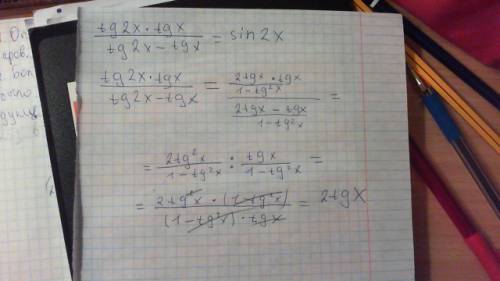 (tg2x·tgx)/(tg2x-tgx) = sin2x
(tg2x·tgx)/(tg2x-tgx) = ((2tgx·tgx)/(1-tg²x))/((2tgx-tgx)/(1-tg²x)) =
= (2tg²x)/(1-tg²x) : (tgx)/(1-tg²x) =
= (2tg²x·(1-tg²x))/((1-tg²x)·tgx) = 2tgx